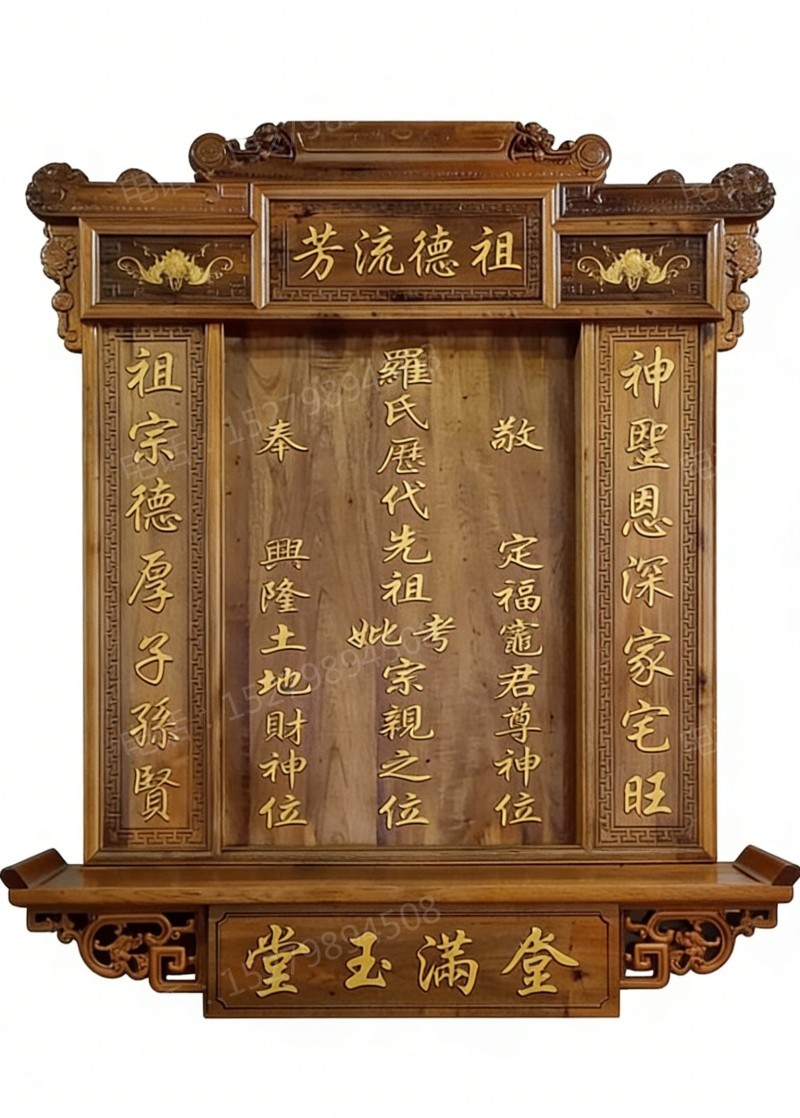 祖德流芳
神聖恩深家宅旺
敬
定福竈君尊神位
羅氏歷代先祖考妣宗親之位
奉
興隆土地財神位
祖宗德厚子孫賢
金滿玉堂
15279894508
15279894508
15279894508